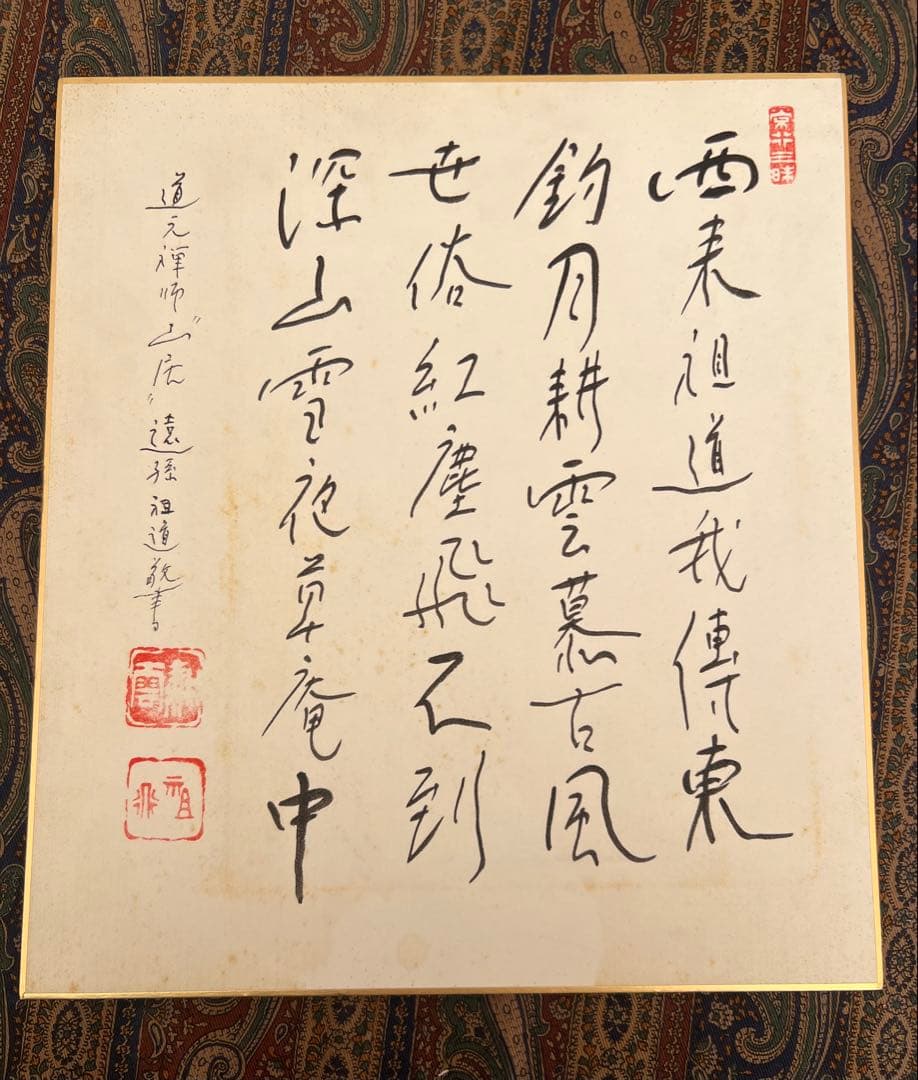 西来祖道我傳東
釣月耕雲慕古風
世俗紅塵飛不到
深山雪夜草庵中
道元禅師“山居”遠孫祖道敬書